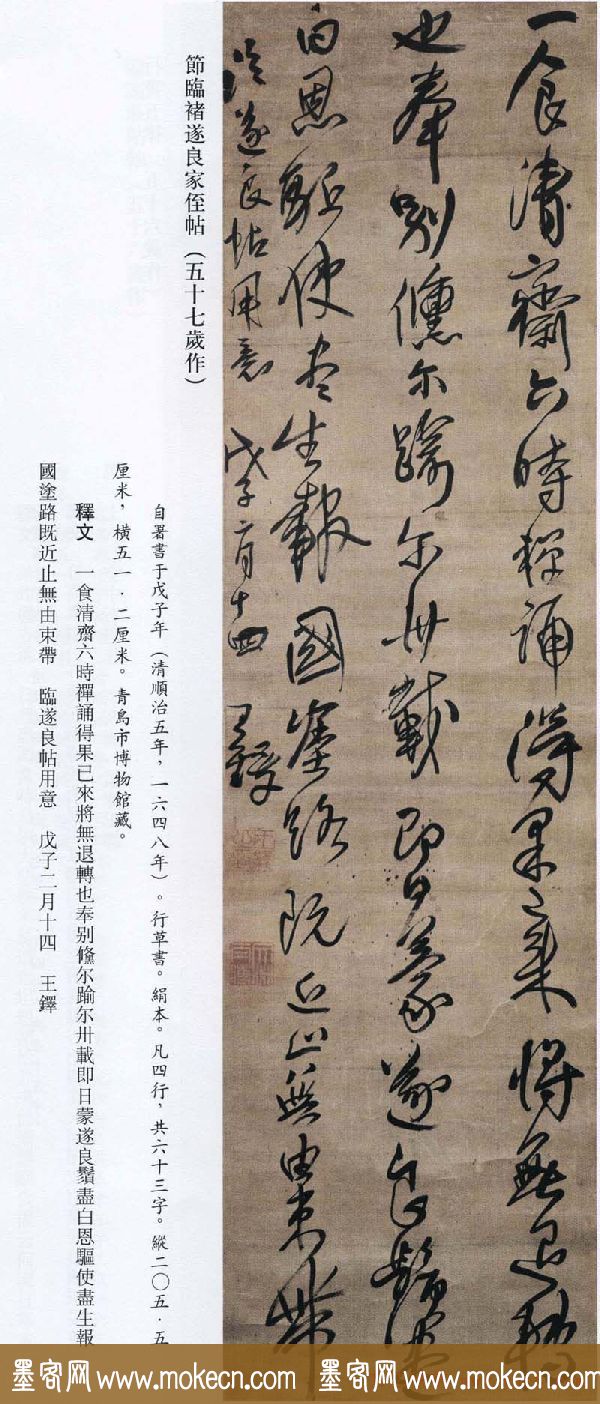 一食清齋六時禪誦得果已來將無退轉
也奉別儵尔踰尔卅載即日蒙遂良鬚盡
白恩驅使盡生報國塗路既近止無由束帶
臨遂良帖用意 戊子二月十四 王鐸
節臨褚遂良家侄帖(五十七歲作)
自署書于戊子年(清順治五年,一六四八年)。行草書。絹本。凡四行,共六十三字。縱二〇五·五
厘米,橫五一·二厘米。青島市博物館藏。
釋文 一食清齋六時禪誦得果已來將無退轉也奉别儵尔踰尔卅載即日蒙遂良鬚盡白恩驅使盡生報
國塗路既近止無由束帶 臨遂良帖用意 戊子二月十四 王鐸
墨客网 www.mokecn.com 墨客网 www.mokecn.com